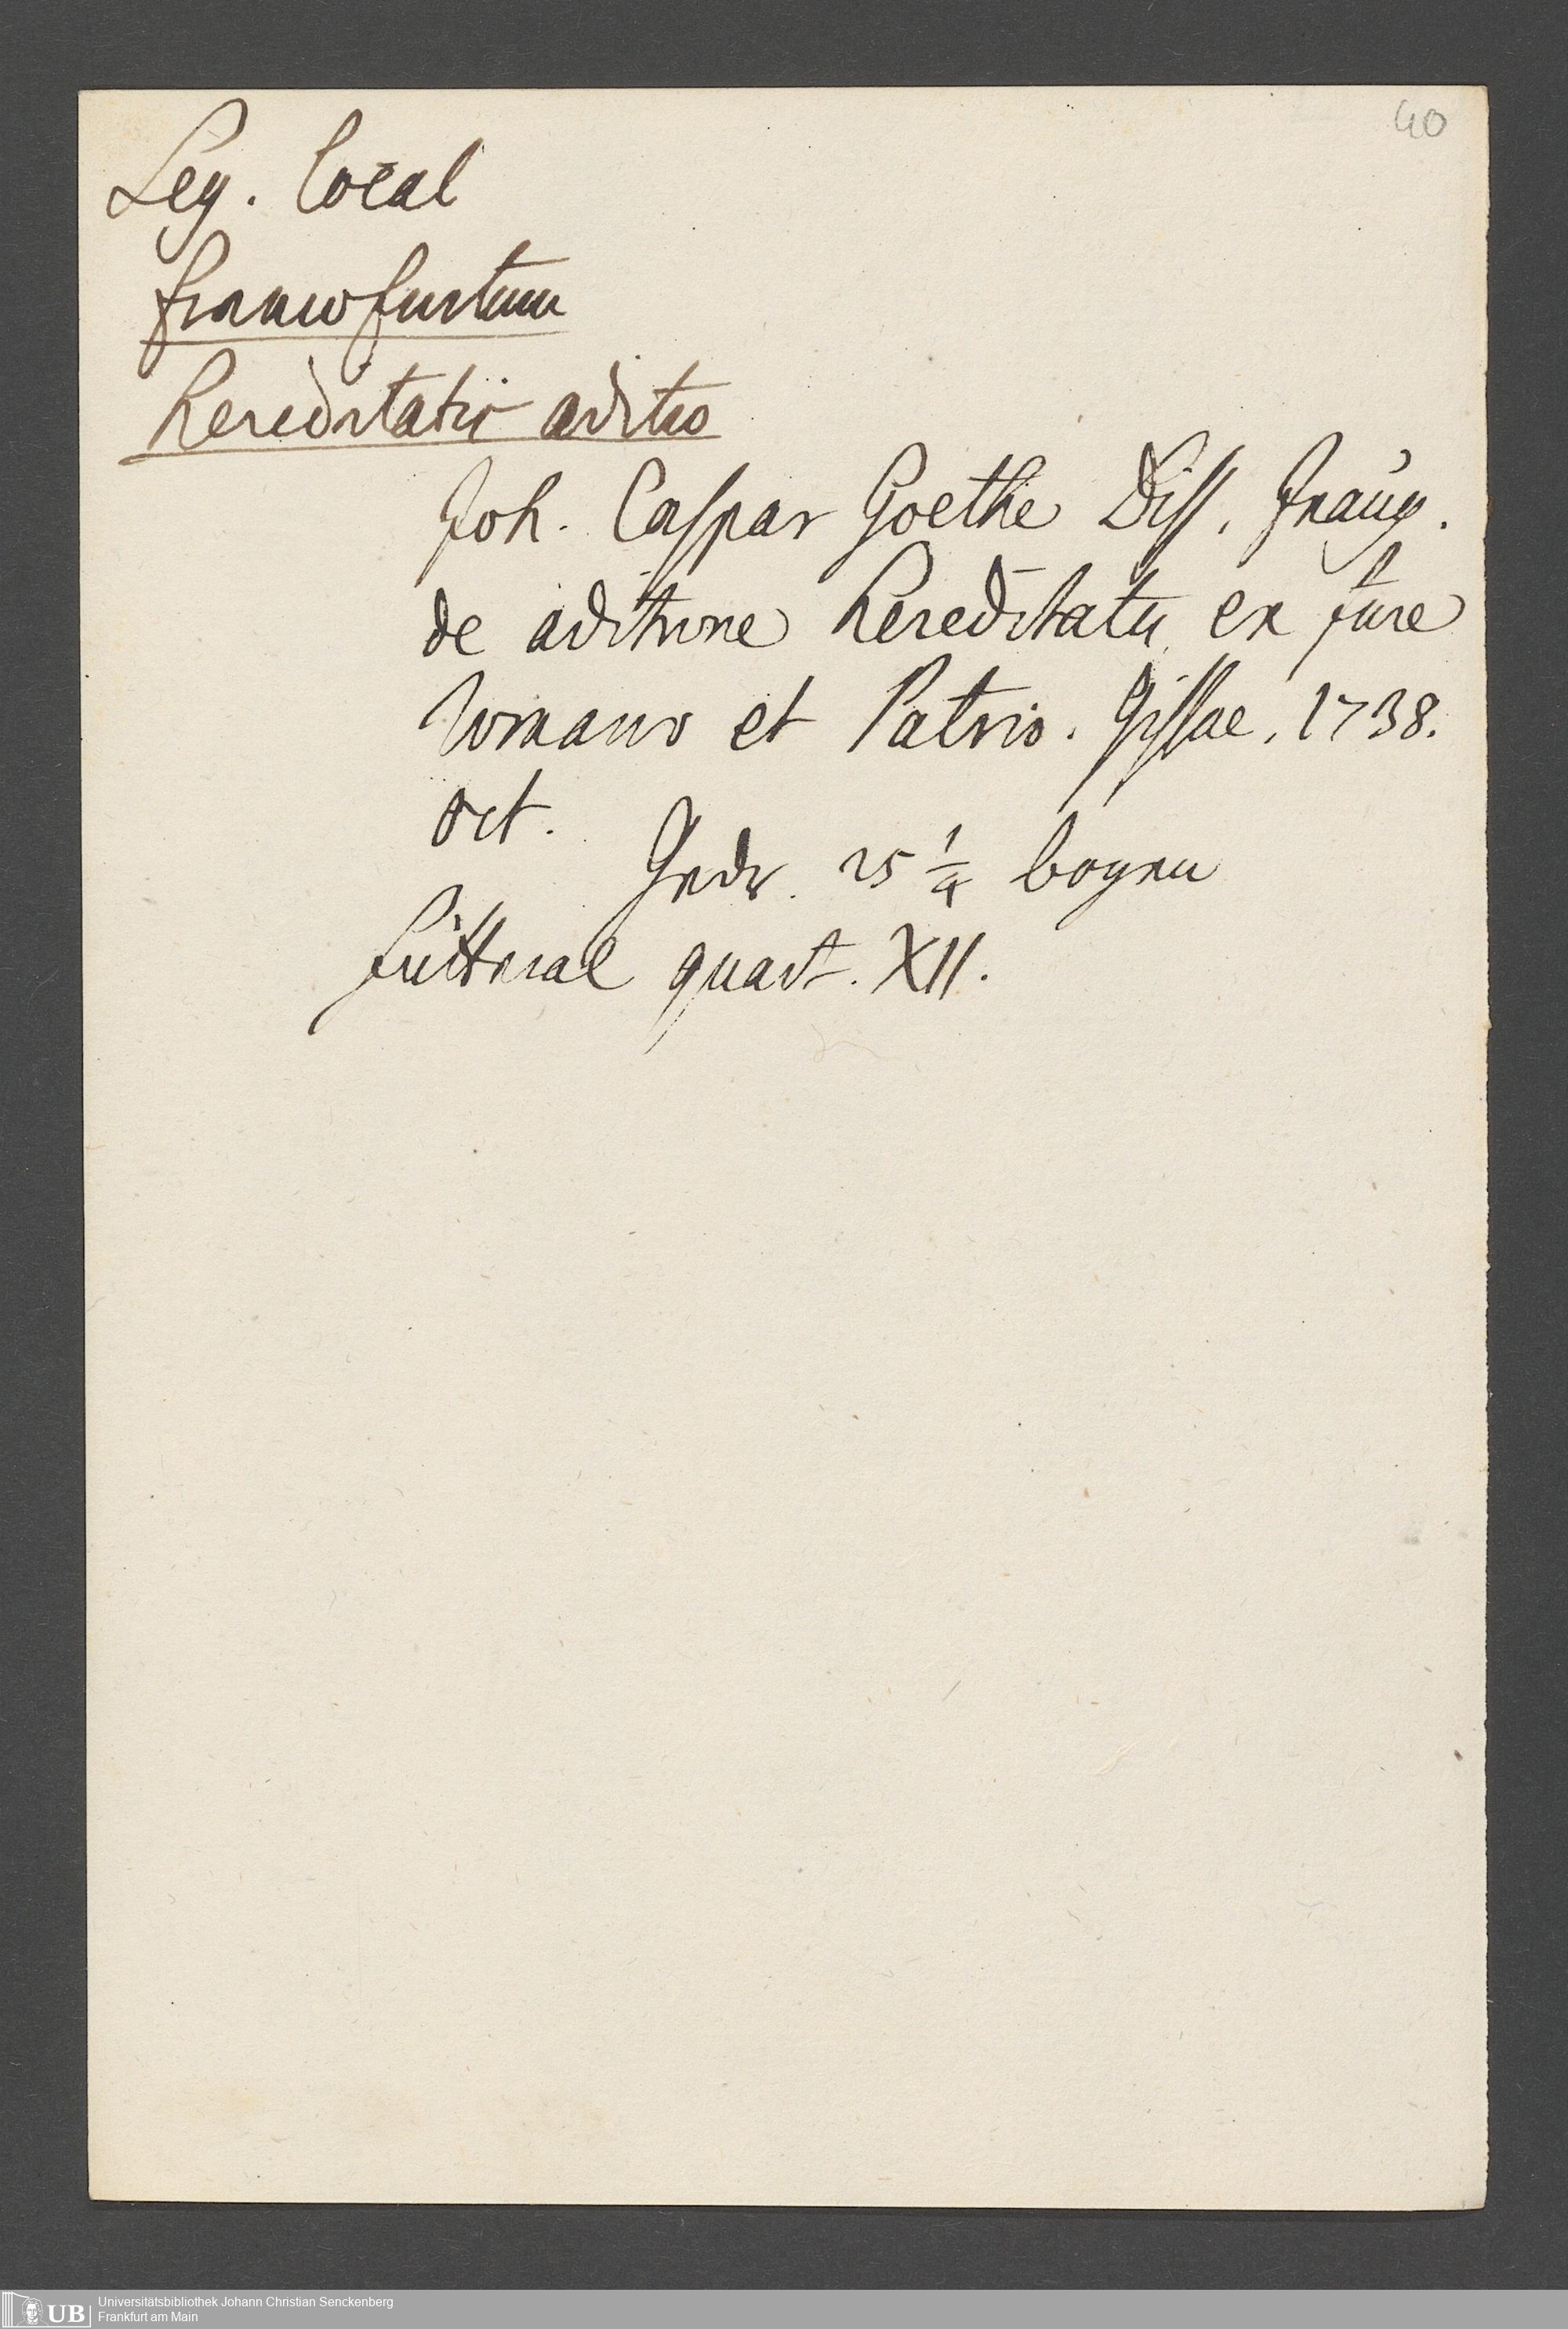 40
Leg. local
francofurtum
hereditatis aditio
Joh. Caspar Goethe Diss. Inaug.
de aditione hereditatis ex jure
Romano et Patrio. Gissae. 1738.
Oct.
Gedr. 25 1/4 bogen
futteral quart. XII.
UB
Universitätsbibliothek Johann Christian Senckenberg
Frankfurt am Main